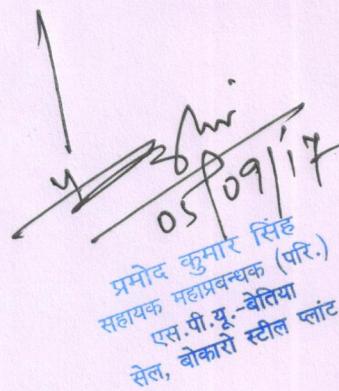 05/09/17
प्रमोद कुमार सिंह
सहायक महाप्रबन्धक (परि.)
एस.पी.यू.-बेतिया
सेल, बोकारो स्टील प्लांट